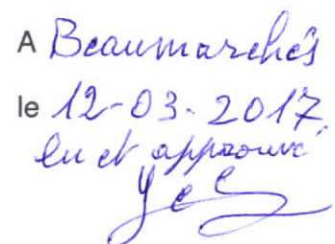 A Beaumarchés
le 12-03-2017
lu et approuvé